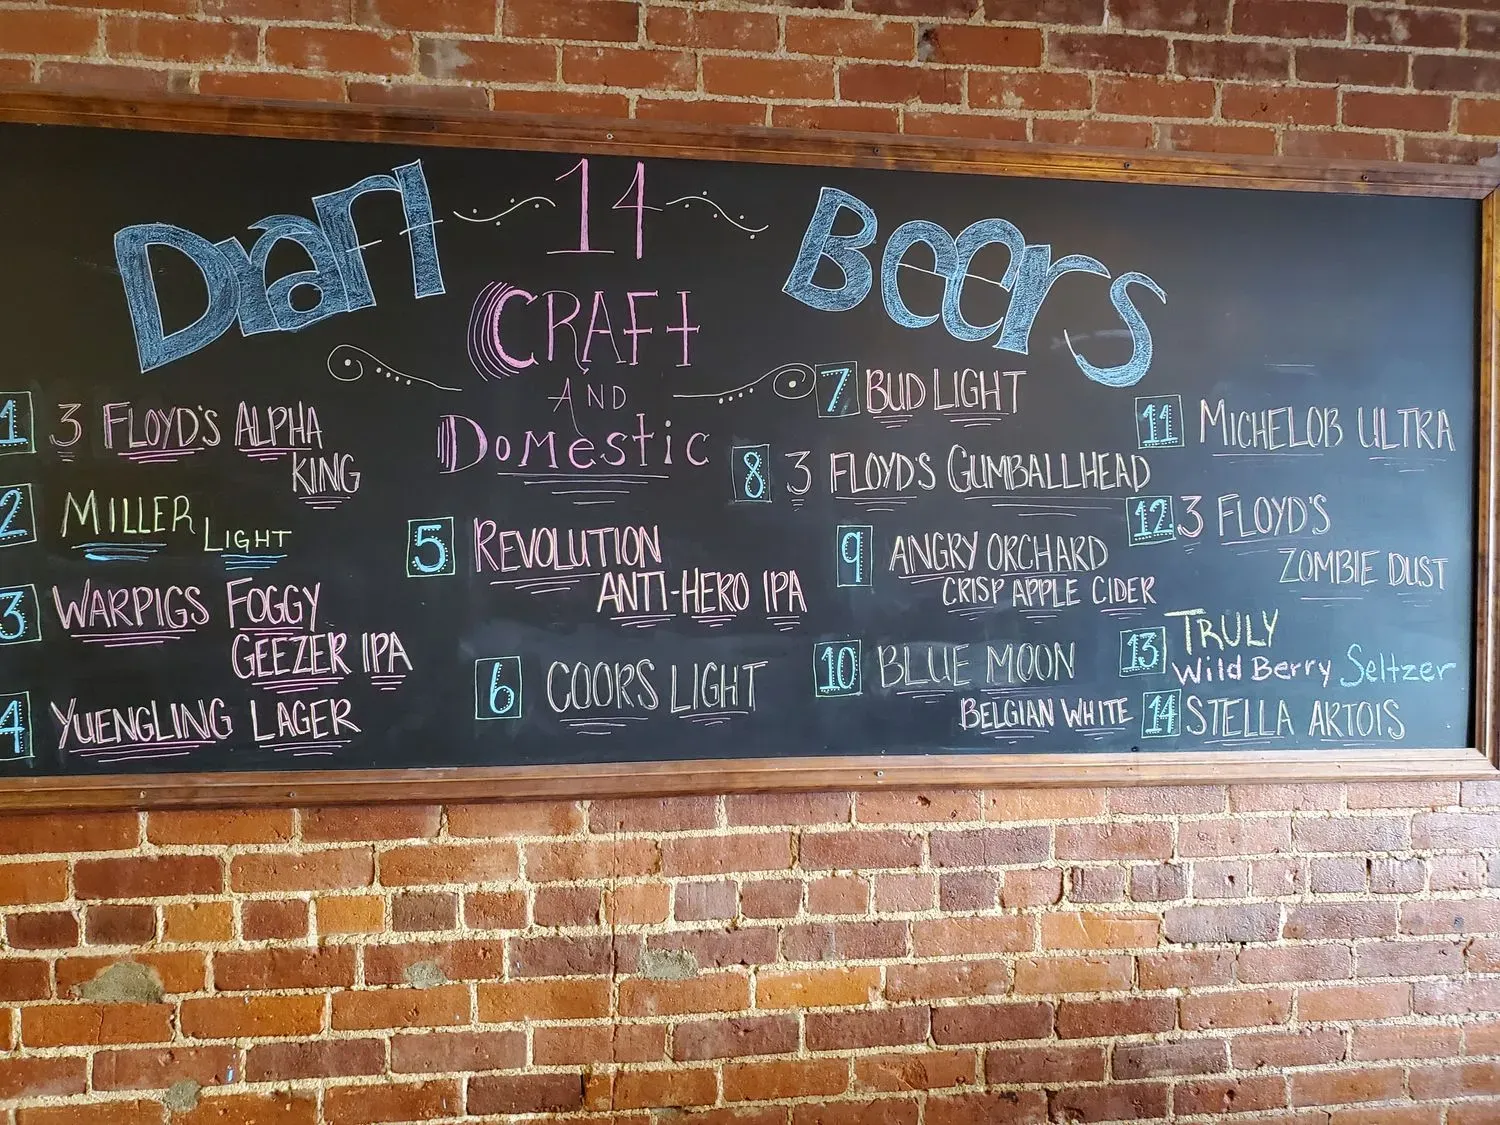 Draft 14 Beers
CRAFT
AND
Domestic
1 3 FLOYD'S ALPHA
KING
2 MILLER LIGHT
3 WARPIGS FOGGY
GEEZER IPA
4 YUENGLING LAGER
5 REVOLUTION
ANTI-HERO IPA
6 COORS LIGHT
7 BUD LIGHT
8 3 FLOYD'S GUMBALLHEAD
9 ANGRY ORCHARD
CRISP APPLE CIDER
10 BLUE MOON
BELGIAN WHITE
11 MICHELOB ULTRA
12 3 FLOYD'S
ZOMBIE DUST
13 TRULY
Wild Berry Seltzer
14 STELLA ARTOIS